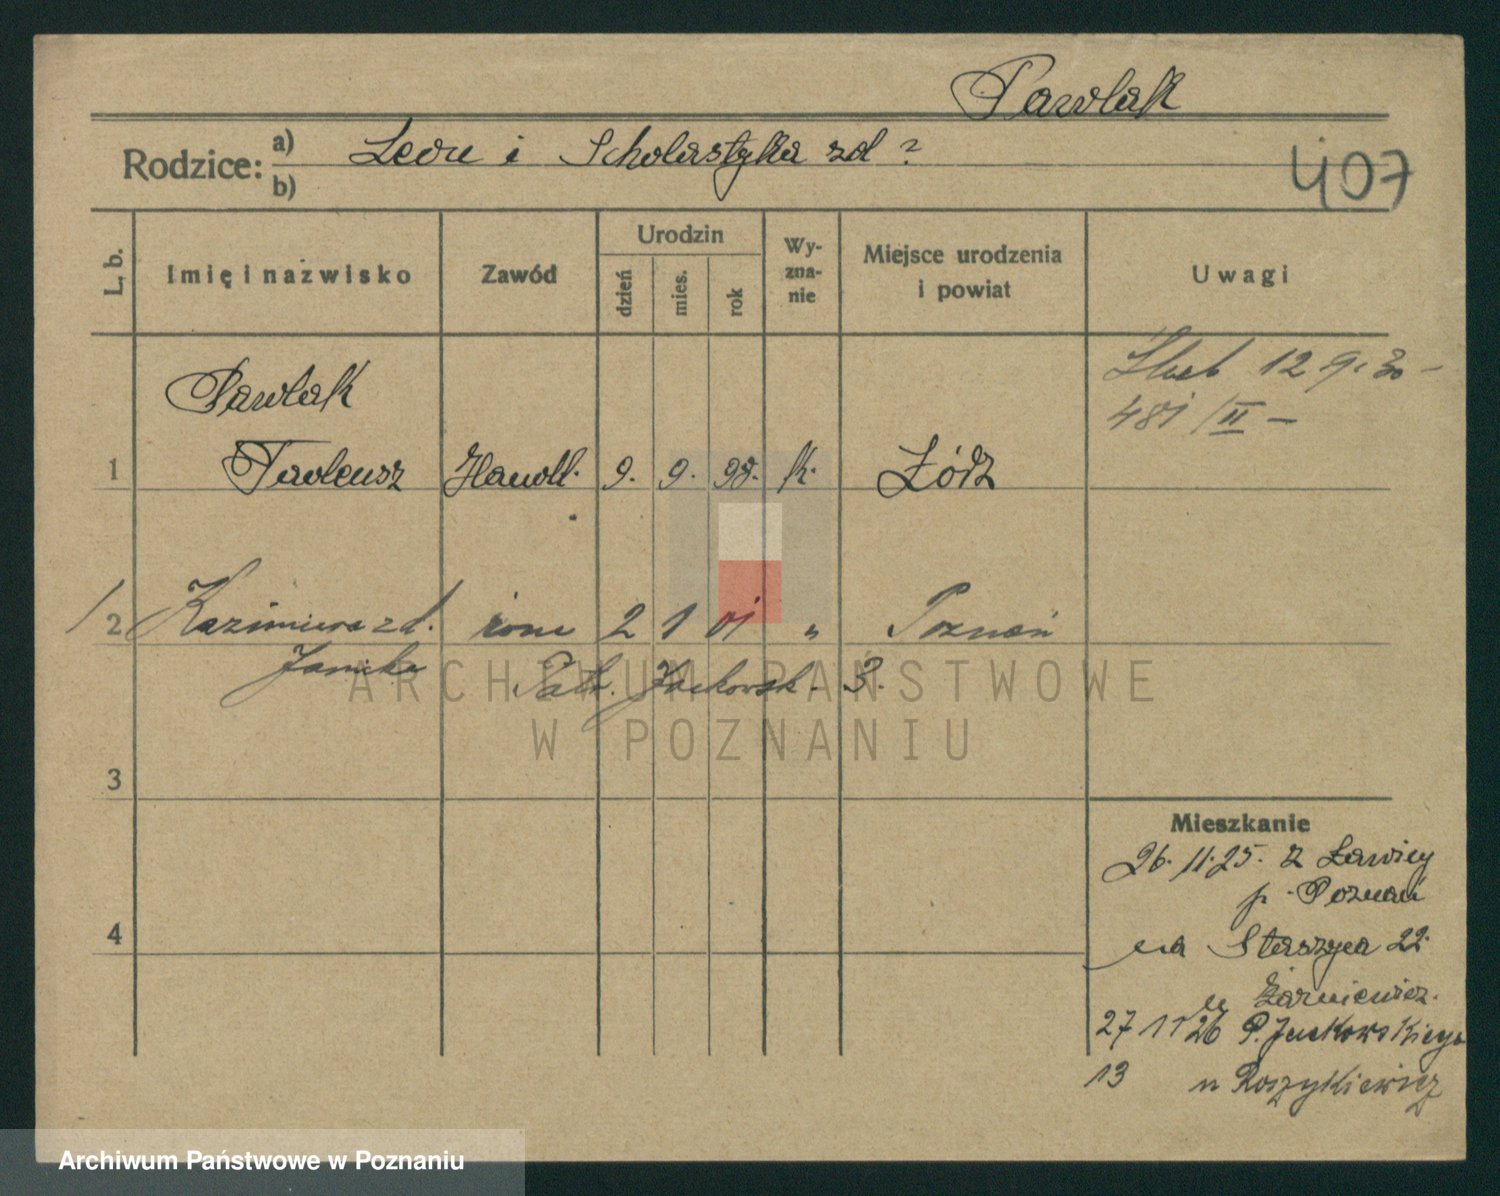 Pawlak
Rodzice: a) Leon i Scholastyka zd ?
b)
407
L. b.
Imię i nazwisko
Zawód
Urodzin
dzień
mies.
rok
Wy-
zna-
nie
Miejsce urodzenia
i powiat
Uwagi
Ślub 12 9. 30 -
481/II -
Pawlak
1 Tadeusz Handl. 9. 9. 98. k. Łódź
/ 2 Kazimiera zd. żona 2 1 01 " Poznań
Janicka Patr. Jackowsk. 3.
ARCHIWUM PAŃSTWOWE
W POZNANIU
3
Mieszkanie
26. 11. 25. z Ławicy
p. Poznań
4
na Staszyca 22.
u
27 11 26 P. Jackowskiego
13 u Roszykiewicz
Archiwum Państwowe w Poznaniu